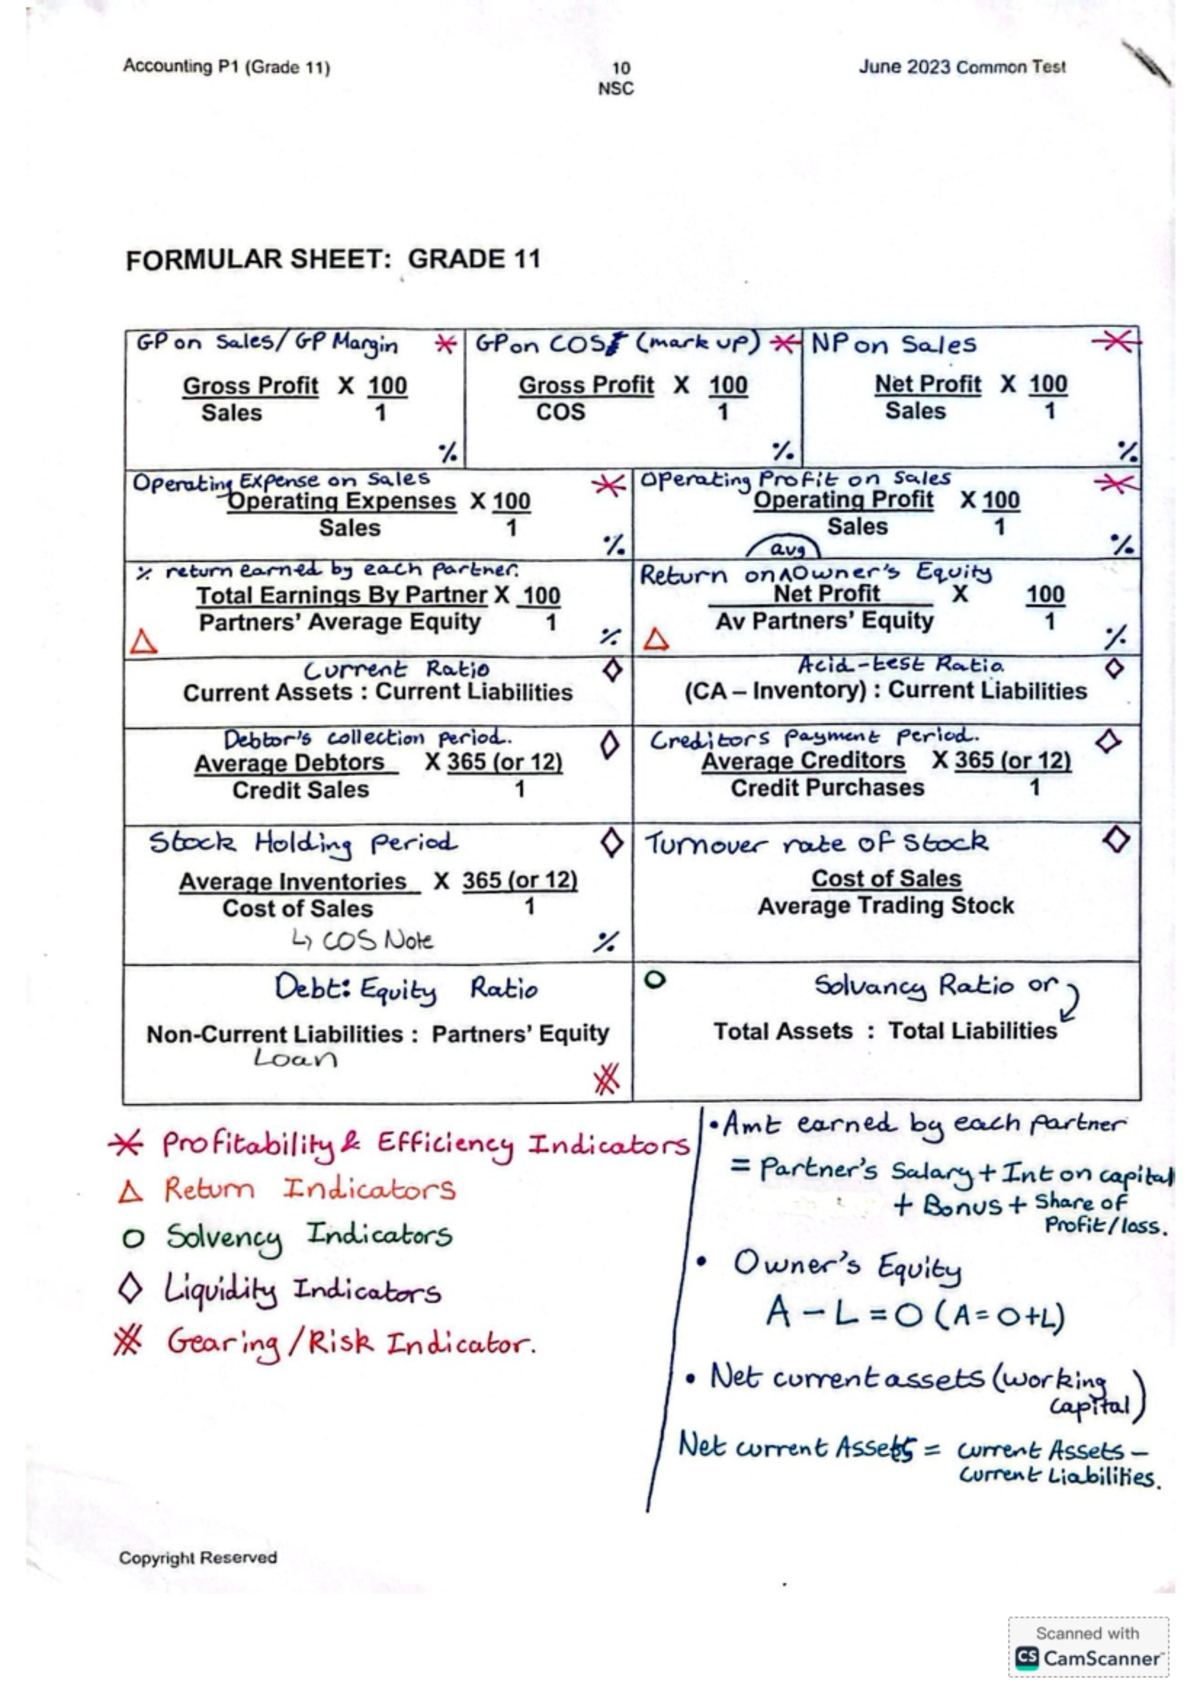 Accounting P1 (Grade 11) 10 June 2023 Common Test
NSC
FORMULAR SHEET: GRADE 11
GP on Sales/GP Margin
Gross Profit X 100
Sales 1
%
GP on COS (mark up)
Gross Profit X 100
COS 1
%
NP on Sales
Net Profit X 100
Sales 1
%
Operating Expense on Sales
Operating Expenses X 100
Sales 1
%
Operating Profit on Sales
Operating Profit X 100
Sales 1
%
% return earned by each Partner.
Total Earnings By Partner X 100
Partners' Average Equity 1
%
avg
Return on ^ Owner's Equity
Net Profit X 100
Av Partners' Equity 1
%
Current Ratio
Current Assets : Current Liabilities
Acid-test Ratio.
(CA – Inventory) : Current Liabilities
Debtor's collection period.
Average Debtors X 365 (or 12)
Credit Sales 1
Creditors Payment Period.
Average Creditors X 365 (or 12)
Credit Purchases 1
Stock Holding Period
Average Inventories X 365 (or 12)
Cost of Sales 1
↳ COS Note
%
Turnover rate of Stock
Cost of Sales
Average Trading Stock
Debt: Equity Ratio
Non-Current Liabilities : Partners' Equity
Loan
Solvancy Ratio or
Total Assets : Total Liabilities
Profitability & Efficiency Indicators
Return Indicators
Solvency Indicators
Liquidity Indicators
Gearing/Risk Indicator.
• Amt earned by each Partner
= Partner's Salary + Int on capital
+ Bonus + Share of
Profit/loss.
• Owner's Equity
A – L = O (A = O+L)
• Net current assets (working
capital)
Net current Assets = Current Assets –
Current Liabilities.
Copyright Reserved
Scanned with
CS CamScanner